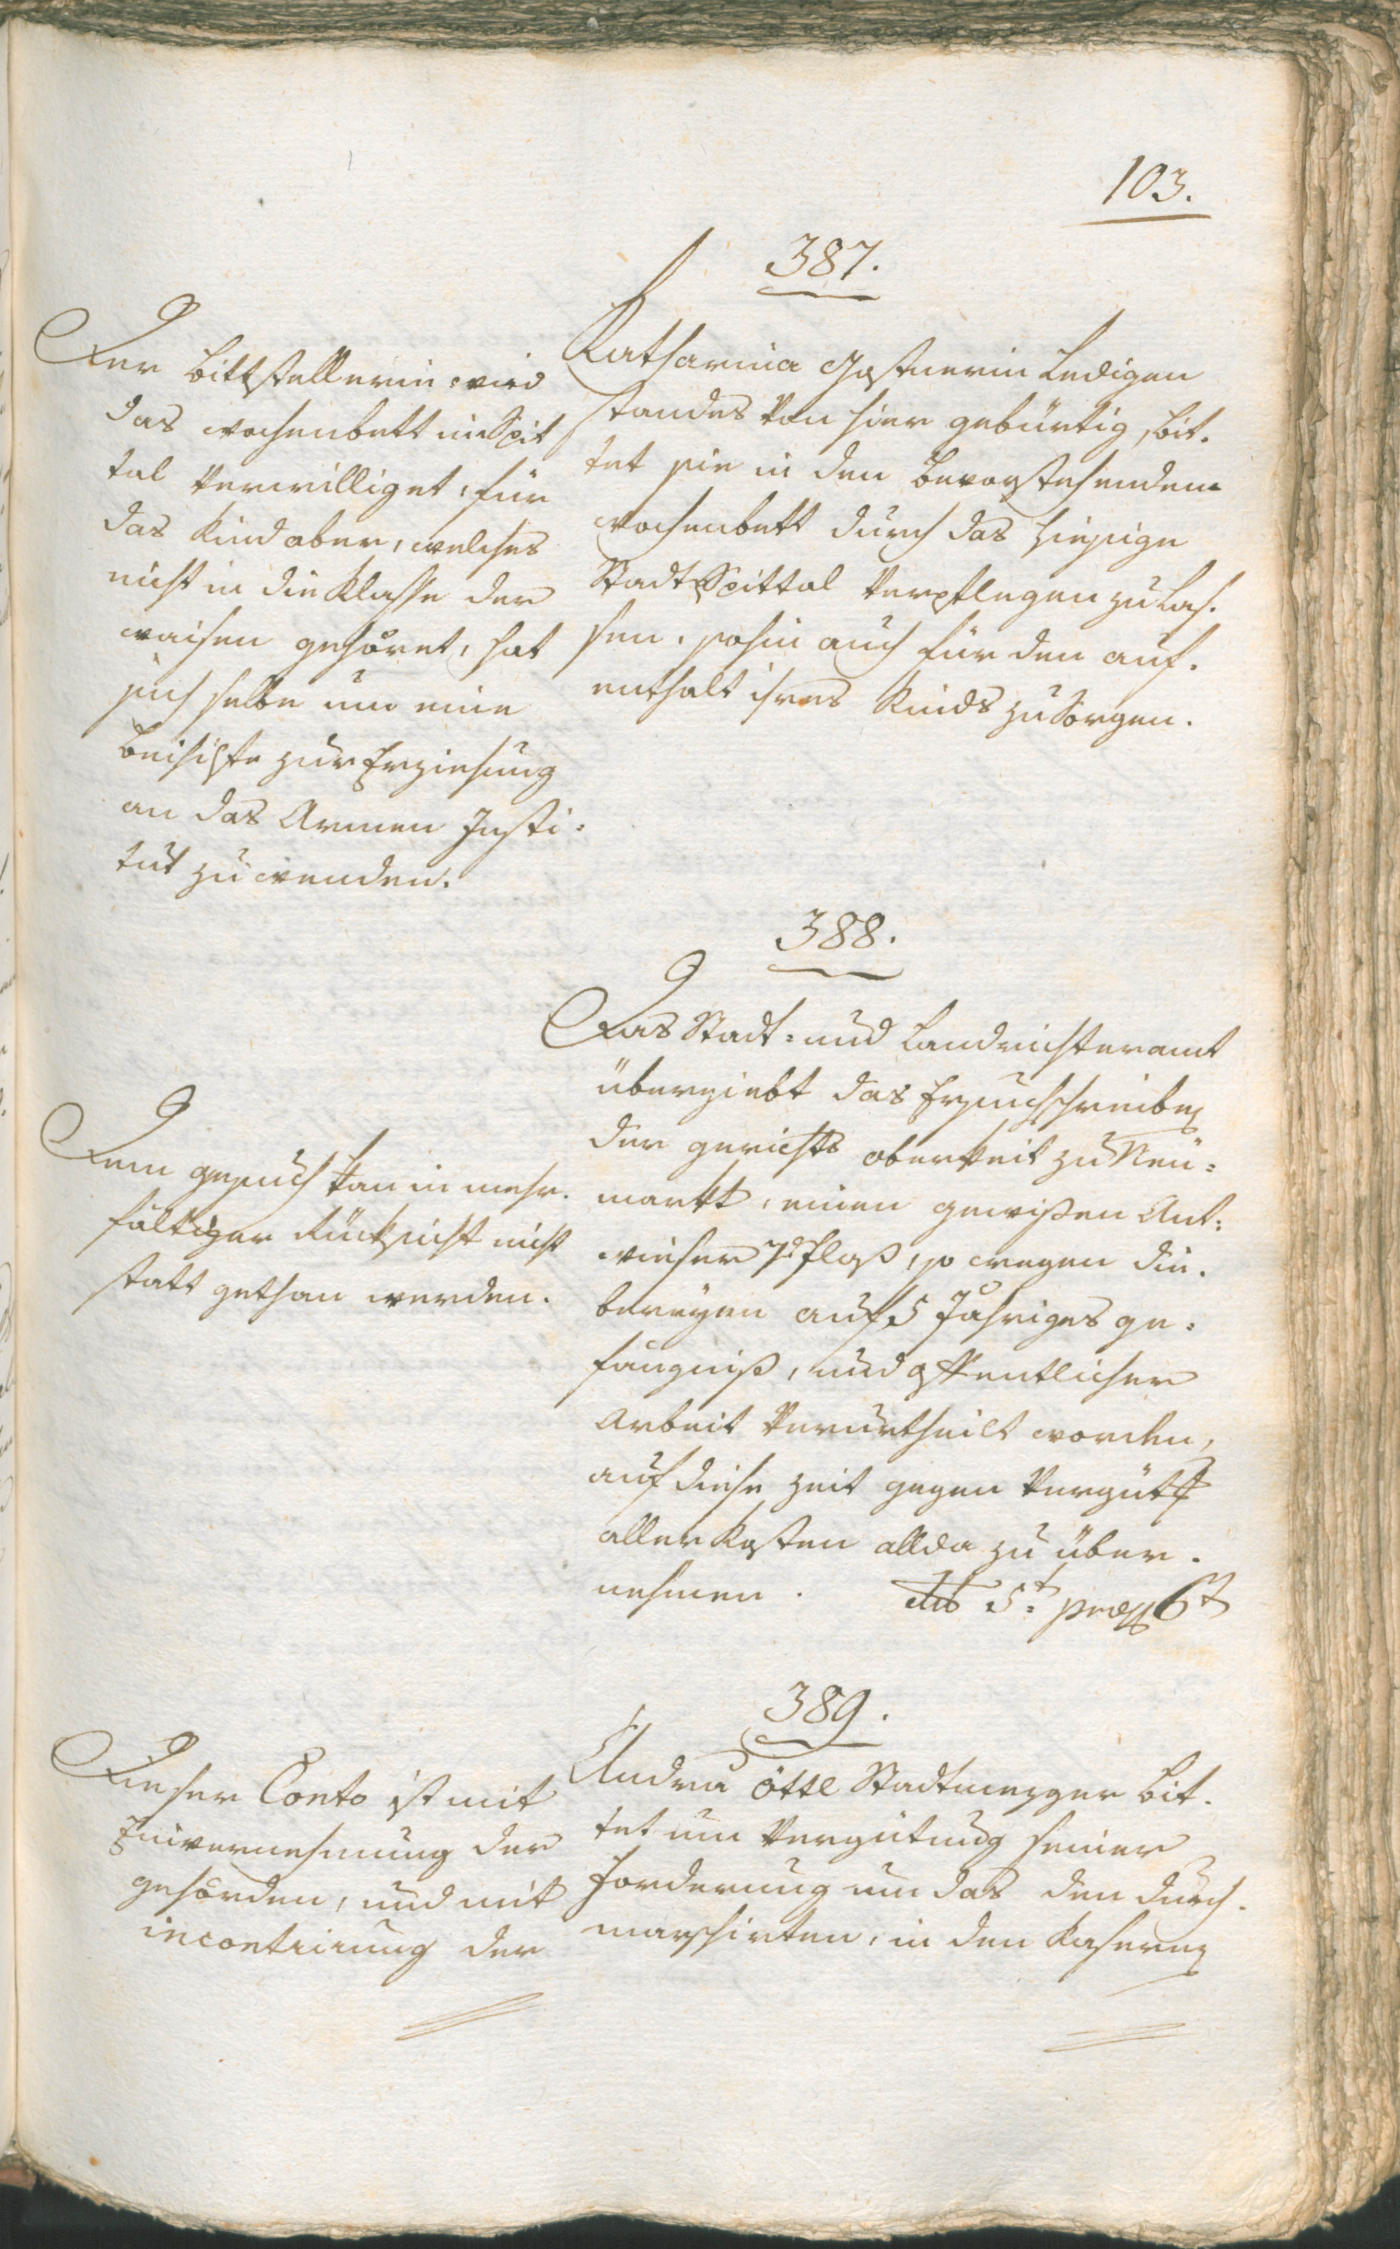 103.
387.
Katharina Gostnerin Ledigen
standes von hier gebürtig, bit-
tet sie in den bevorstehenden
wochenbett durch das hiesige
Stadt Spittal Verpflegen zu Las-
sen, sohin auch für den auf-
enthalt ihres Kinds zu Sorgen.
Der Bittstellerin wird
das wochenbett im Spit
tal Verwilliget, für
das Kind aber, welches
nicht in die Klasse der
waisen gehöret, hat
sich selbe um eine
Beihilfe zur Erziehung
an das Armen Insti-
tut zu wenden.
388.
Das Stadt- und Landrichteramt
übergiebt das Ersuchschreiben
der gerichts oberkeit zu Neu-
markt, einen gewißen Ant:
wieser Floß, so wegen die-
bereyen auf 5 Jähriges ge-
fängniß, und öffentlicher
Arbeit Verurtheilt worden,
auf diese zeit gegen Vergütt
aller Kosten allda zu über-
nehmen. dto 5t præs 6t
Dem gesuch kan in mehr-
fältiger Rücksicht nicht
statt gethan werden.
389.
Andrä öttl Stadtmezger bit-
tet um Vergütung seiner
Forderung um das den durch-
marschirten, in den Kasernen
Dieser Conto ist mit
Einvernehmung der
gehörden, und mit
incontrirung der